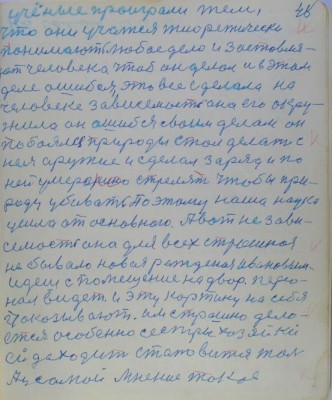 учёные проиграли тем, 46
что они учатся тиоретически
понимают любое дело и заставля-
ют человека чтоб он делал и в этом
деле ошибся, это все сделала на
человеке зависемость она его окру-
жила он ошибся своим делам он
побоялся природы стал делать с
ней аружие и сделал заряд и по
ней умера стрелят чтобы при-
роду убивать поэтому наша наука
ушла от основного. А вот не зави-
семость она для всех страшная
не бывало новая рожденая Ивановым.
идеш с помещение на двор. перо-
нал видет и эту картину на себя
показывают. им страшно дело-
ется особенно сестры хозяйки
ей доходит становится там
А у самой мнение такое